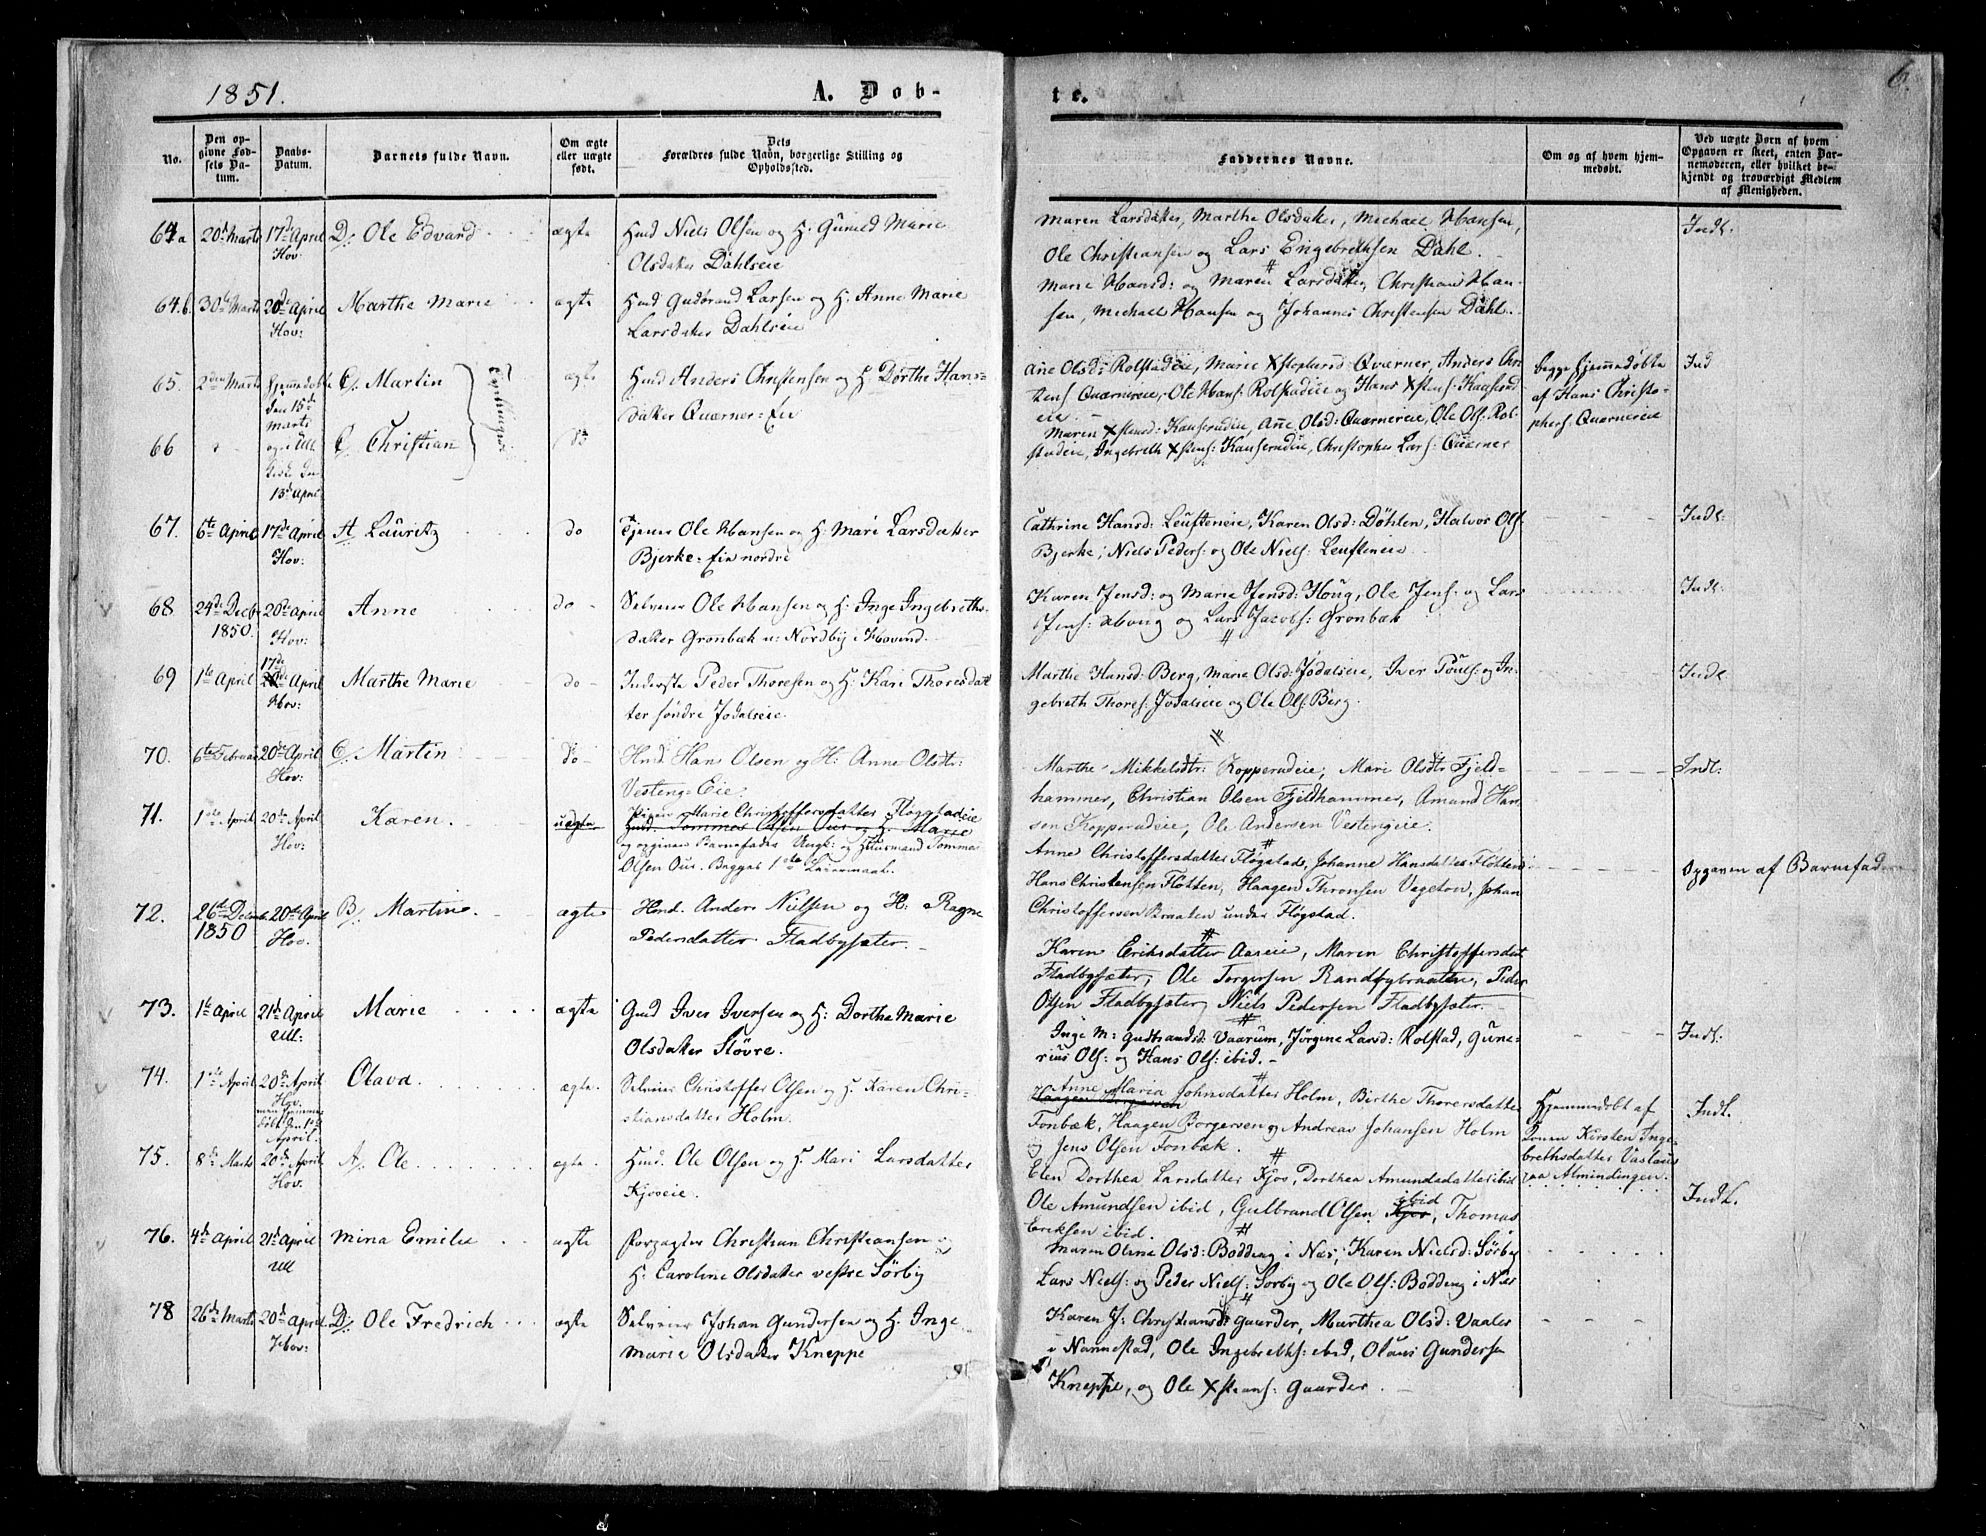 1851.
A. Døb-
te.
6.
No.
Den op-
givne Fød-
sels Da-
tum.
Daabs-
Datum.
Barnets fulde Navn.
Om ægte
eller uægte
født.
Dets
Forældres fulde Navn, borgerlige Stilling og
Opholdssted.
Faddernes Navne.
Om og af hvem hjem-
medøbt.
Ved uægte Børn af hvem
Opgaven er skeet, enten Bar-
nemoderen, eller hvilket be-
kjendt og troværdigt Medlem
af Menigheden.
64a 20de Marts 17de April D/ Ole Edvard ægte Hmd Niels Olsen og H. Gunild Marie
Hov: Olsdatter Dahlseie
Maren Larsdatter, Marthe Olsdatter, Michael Hansen, Indl.
Ole Christiansen og Lars Engebrethsen Dahl.
64.b. 30te Marts 20de April Marthe Marie ægte Hmd Gudbrand Larsen og H. Anne Marie
Hov: Larsdatter Dahlseie
Marie Hansd: og Maren Larsdatter, Christian Han-
sen, Michael Hansen og Johannes Christensen Dahl.
65. 2den Marts Hjemmedøbt C/ Martin Tvillinger ægte Hmd Anders Christensen og H. Dorthe Hans-
den 15de datter Quærner-Eie
Marts
66 og i Ull. C/ Christian do
Kirke den
13de April
Ane Olsd: Rolstadeie, Marie Xstophersd: Qværner, Anders Chr- begge hjemmedøbte Ind
stens: Quærnereie, Ole Hans: Rolstadeie og Hans Xstens: Kauserud- af Hans Christo-
eie phers: Quærnereie
Maren Xstensd: Kauserudeie, Ane Olsd: Quærnereie, Ole Ols: Rol-
stadeie, Ingebreth Xstens: Kauserudeie, Christopher Lars: Quærner
67. 6te April 17de April A Lauritz do Tjener Ole Hansen og H. Mari Larsdatter
Hov: Bjerke-Eie nordre
Cathrine Hansd: Leufteneie, Karen Olsd: Døhlen, Halvor Ols: Indl.
Bjerke, Niels Peders: og Ole Niels: Leufteneie
68 24de Decbr 20de April Anne do Selveier Ole Hansen og H. Inge Ingebreths-
1850. Hov: datter Grønbæk u: Nordby i Hovind.
Karen Jensd: og Marie Jensd: Houg, Ole Jens: og Lars Indl.
Jens: Houg og Lars Jacobs: Grønbæk
69 1te April 17de April Marthe Marie do Inderste Peder Thoresen og H. Kari Thoresdat
Hov: ter søndre Jødalseie.
Marthe Hansd: Berg, Marie Olsd: Jødalseie, Iver Pouls: og In- Indl
gebreth Thores: Jødalseie og Ole Ols: Berg.
70. 6te Februar 20de April C/ Martin do Hmd. Hans Olsen og H: Anne Olsdtr:
Hov: Vesteng-Eie.
Marthe Mikkelsdtr: Kopperudeie, Mari Olsdtr Fjeld- Indl:
hammer, Christian Olsen Fjeldhammer, Amund Han-
sen Kopperudeie, Ole Andersen Vestengeie.
71. 1ste April 20de April Karen. uægte Pigen Marie Christoffersdatter Fløgstadeie
Hov: Hmd. Tommas Olsen Ous og H. Marie
og opgiven Barnefader Ungk: og Huusmand Tommas
Olsen Ous. Begges 1ste Leiermaal.
Anne Christoffersdatter Fløgstad, Johanne Hansdatter Fløtten Opgaven af Barnefader
Hans Christensen Fløtten, Haagen Thronsen Vegeton, Johan
Christoffersen Braaten under Fløgstad.
72. 26de Decembr 20de April B/ Martin. ægte Hmd. Anders Nielsen og H: Ragne
1850 Hov. Pedersdatter Fladbysæter.
Karen Eriksdatter Aaseie, Maren Christoffersdat
Fladbysæter, Ole Torgersen Randbybraatten, Peder
Olsen Fladbysæter, Niels Pedersen Fladbysæter.
73. 1te April 21de April Marie ægte Gmd Iver Iversen og H: Dorthe Marie
Ull: Olsdatter Støvre.
Inge M: Gudbrandsd: Vaarum, Jørgine Larsd: Rolstad, Gune- Indl.
rius Ols: og Hans Ols: ibid.
74. 1ste April 20de April Olava ægte. Selveier Christoffer Olsen og H. Karen Chri-
Hov. stiansdatter Holm.
men hjemme-
døbt den 1ste
April.
Anne Maria Johnsdatter Holm, Birthe Thorersdatter Hjemmedøbt af Indl.
Tonbæk, Haagen Borgersen og Andreas Johansen Holm Konen Kirsten Inge-
og Jens Olsen Tonbæk. brethsdatter Vaslaus
paa Almindingen.
75. 8de Marts 20de April A/ Ole ægte. Hmd. Ole Olsen og H. Mari Larsdatter
Hov. Kjoseie.
Elen Dorthea Larsdatter Kjos, Dorthea Amundsdatter ibid Indl.
Ole Amundsen ibid, Gulbrand Olsen Kjos ibid, Thomas
Eriksen ibid.
76. 4de April 21de April Mina Emilie ægte Forpagter Christian Christiansen og
Ull H. Caroline Olsdatter vestre Sørby
Maren Olina Olsd: Bodding i Næs, Karen Nielsd: Sørby
Lars Niels: og Peder Niels: Sørby og Ole Ols: Bodding i Næs
78 26de Marts 20de April D/ Ole Fredrich ægte Selveier Johan Gundersen og H. Inge
Hov: Marie Olsdatter Kneppe
Karen J. Christiansd: Gaarder, Marthea Olsd: Vaaler
i Nannestad, Ole Ingebreths: ibid, Olaus Gundersen
Kneppe, og Ole Xstians: Gaarder.